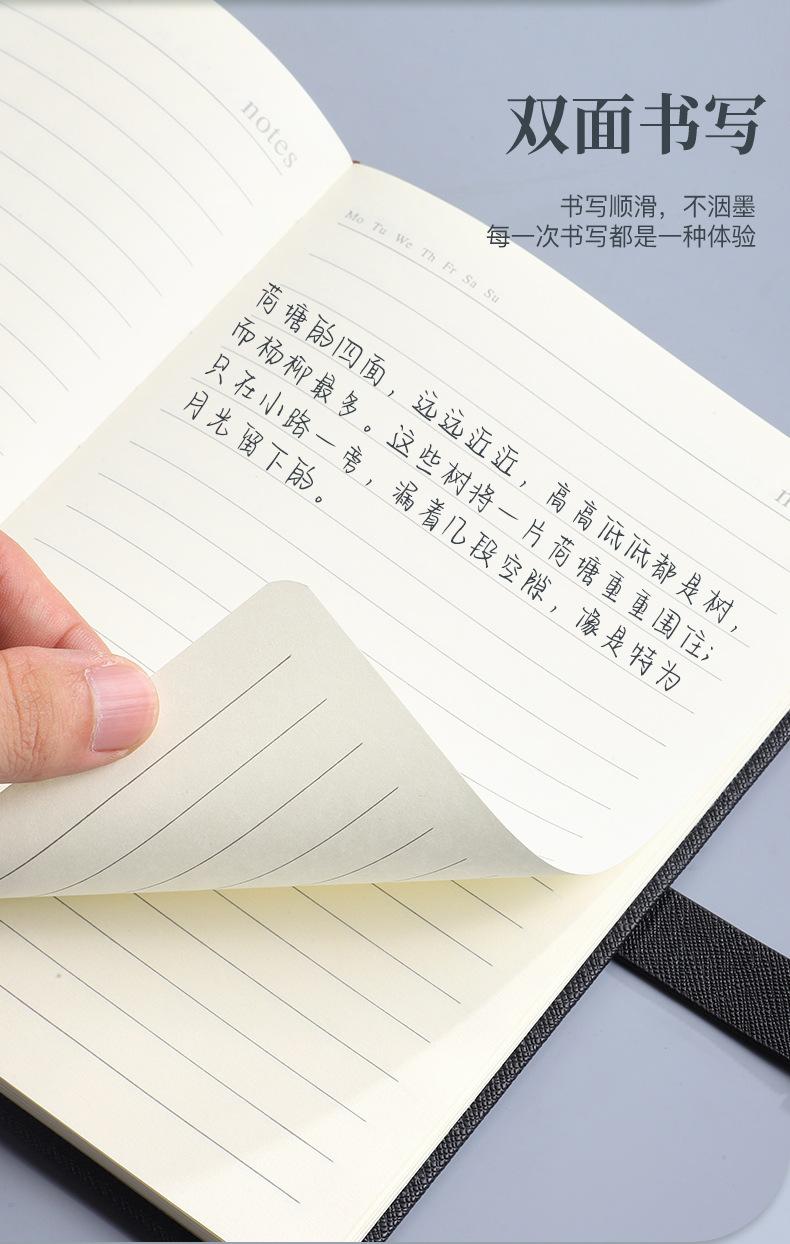 双面书写
书写顺滑，不洇墨
每一次书写都是一种体验
notes
Mo Tu We Th Fr Sa Su
荷塘的四面，远远近近，高高低低都是树，
而杨柳最多。这些树将一片荷塘重重围住；
只在小路一旁，漏着几段空隙，像是特为
月光留下的。